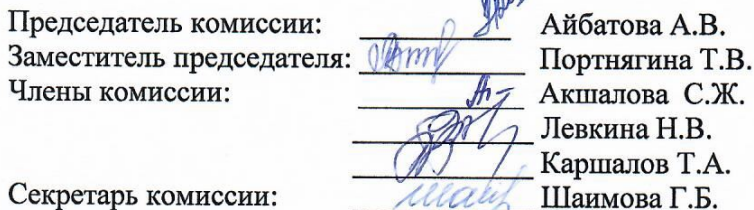 Председатель комиссии: Айбатова А.В.
Заместитель председателя: Портнягина Т.В.
Члены комиссии: Акшалова С.Ж.
Левкина Н.В.
Каршалов Т.А.
Секретарь комиссии: Шаимова Г.Б.